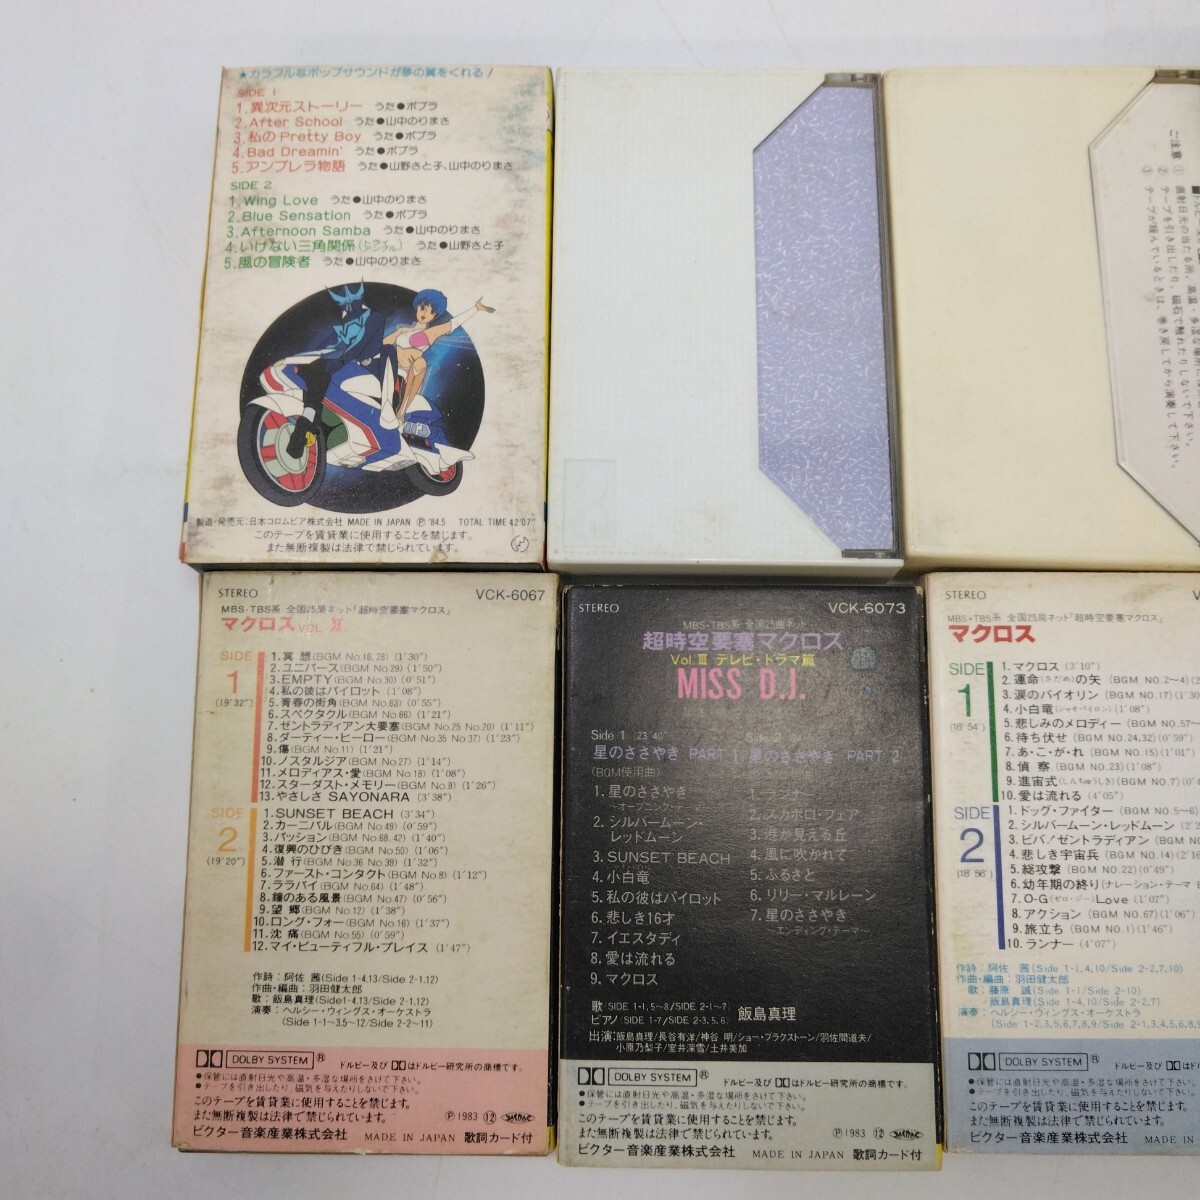 ★カラフルなポップサウンドが夢の翼をくれる！
SIDE 1
1.異次元ストーリー うた●ポプラ
2.After School うた●山中のりまさ
3.私のPretty Boy うた●ポプラ
4.Bad Dreamin' うた●ポプラ
5.アンブレラ物語 うた●山野さと子、山中のりまさ
SIDE 2
1.Wing Love うた●山中のりまさ
2.Blue Sensation うた●ポプラ
3.Afternoon Samba うた●山中のりまさ
4.いけない三角関係 うた●山野さと子
5.風の冒険者 うた●山中のりまさ
製造・発売元:日本コロムビア株式会社 MADE IN JAPAN Ⓟ '84.5 TOTAL TIME 42'07"
このテープを賃貸業に使用することを禁じます。
また無断複製は法律で禁じられています。
ご注意
① 直射日光の当たる所、高温・多湿な場所に
② テープを引き出したり、磁石で触れたりしないで下さい。
③ テープが緩んでいるときは、巻き戻してから演奏して下さい。
STEREO VCK-6067
MBS・TBS系 全国25局ネット「超時空要塞マクロス」
マクロス VOL.Ⅱ
SIDE 1 (19'32")
1.冥 想(BGM No.18,28) (1'30")
2.ユニバース(BGM No.29) (1'50")
3.EMPTY(BGM No.30) (0'51")
4.私の彼はパイロット (1'08")
5.青春の街角(BGM No.63) (0'55")
6.スペクタクル(BGM No.66) (1'21")
7.ゼントラディアン大要塞(BGM No.25 No.20) (1'11")
8.ダーティー・ヒーロー(BGM No.35 No.37) (1'23")
9.傷(BGM No.11) (1'21")
10.ノスタルジア(BGM No.27) (1'14")
11.メロディアス・愛(BGM No.18) (1'08")
12.スターダスト・メモリー(BGM No.9) (1'26")
13.やさしさ SAYONARA (3'38")
SIDE 2 (19'20")
1.SUNSET BEACH (3'34")
2.カーニバル(BGM No.49) (0'59")
3.パッション(BGM No.68.42) (1'40")
4.復興のひびき(BGM No.50) (1'06")
5.潜 行(BGM No.36 No.39) (1'32")
6.ファースト・コンタクト(BGM No.8) (1'12")
7.ララバイ(BGM No.64) (1'48")
8.鐘のある風景(BGM No.47) (0'56")
9.望 郷(BGM No.12) (1'38")
10.ロング・フォー(BGM No.16) (1'37")
11.沈 痛(BGM No.55) (0'59")
12.マイ・ビューティフル・プレイス (1'47")
作詩：阿佐 茜(Side 1-4,13/Side 2-1,12)
作曲・編曲：羽田健太郎
歌：飯島真理(Side1-4,13/Side 2-1,12)
演奏：ヘルシー・ウィングス・オーケストラ
(Side 1-1〜3.5〜12/Side 2-2〜11)
DOLBY SYSTEM ® ドルビー及びはドルビー研究所の商標です。
●保管には直射日光や高温・多湿な場所をさけて下さい。
●テープを引き出したり、磁気を与えたりしないで下さい。
このテープを賃貸業に使用することを禁じます。
また無断複製は法律で禁じられています。 Ⓟ1983 ⑫
ビクター音楽産業株式会社 MADE IN JAPAN 歌詞カード付
STEREO VCK-6073
MBS・TBS系 全国25曲ネット
超時空要塞マクロス
Vol.Ⅲ テレビ・ドラマ篇
MISS D.J.
Side 1 (23'40"
星のささやき PART 1
(BGM使用曲)
1. 星のささやき
〜オープニング・テーマ〜
2. シルバームーン・
レッドムーン
3. SUNSET BEACH
4. 小白竜
5. 私の彼はパイロット
6. 悲しき16才
7. イエスタディ
8. 愛は流れる
9. マクロス
星のささやき PART 2
2. スカボロ・フェア
3. 港が見える丘
4. 風に吹かれて
5. ふるさと
6. リリー・マルレーン
7. 星のささやき
〜エンディング・テーマ〜
歌 (SIDE 1-1,5〜8/SIDE 2-1〜7)
ピアノ (SIDE 1-7/SIDE 2-3,5,6) 飯島真理
出演：飯島真理/長谷有洋/神谷 明/ショー・ブラクストーン/羽佐間道夫/
小原乃梨子/室井深雪/土井美加
DOLBY SYSTEM ® ドルビー及びはドルビー研究所の商標です。
●保管には直射日光や高温・多湿な場所をさけて下さい。
●テープを引き出したり、磁気を与えたりしないで下さい。
このテープを賃貸業に使用することを禁じます。
また無断複製は法律で禁じられています。 Ⓟ1983 ⑫
ビクター音楽産業株式会社 MADE IN JAPAN 歌詞カード付
STEREO
MBS・TBS系 全国25局ネット「超時空要塞マクロス」
マクロス
SIDE 1 (18'54")
1.マクロス (3'10")
2.運命(さだめ)の矢 (BGM NO.2〜4)
3.涙のバイオリン (BGM NO.17)
4.小白竜(シャオパイロン) (1'08")
5.悲しみのメロディー (BGM NO.57〜
6.待ち伏せ (BGM NO.24,32) (0'59")
7.あ・こ・が・れ (BGM NO.15) (1'01")
8.偵 察 (BGM NO.23) (1'08")
9.進宙式(しんちゅうしき) (BGM NO.7)
10.愛は流れる (4'05")
SIDE 2 (18'56")
1.ドッグ・ファイター (BGM NO.5〜6)
2.シルバームーン・レッドムーン
3.ビバ！ゼントラディアン (BGM NO.
4.悲しき宇宙兵 (BGM NO.14)
5.総攻撃 (BGM NO.22) (0'49")
6.幼年期の終り(ナレーション・テーマ
7.O-G(ゼロ・ジー)Love (1'07")
8.アクション (BGM NO.67) (1'06")
9.旅立ち (BGM NO.1) (1'46")
10.ランナー (4'07")
作詩：阿佐 茜(Side 1-1,4,10/Side 2-2,7,10)
作曲・編曲：羽田健太郎
歌：藤原 誠(Side 1-1/Side 2-10)
飯島真理(Side 1-4,10/Side 2-2,7)
演奏：ヘルシー・ウィングス・オーケストラ
(Side 1-2,3,5,6,7,8,9/Side 2-1,3,4,5,6
DOLBY SYSTEM ® ドルビー及び
●保管には直射日光や高温・多湿な場所をさけて下さい。
●テープを引き出したり、磁気を与えたりしないで下さい。
このテープを賃貸業に使用することを禁じます。
また無断複製は法律で禁じられています。
ビクター音楽産業株式会社 MADE IN